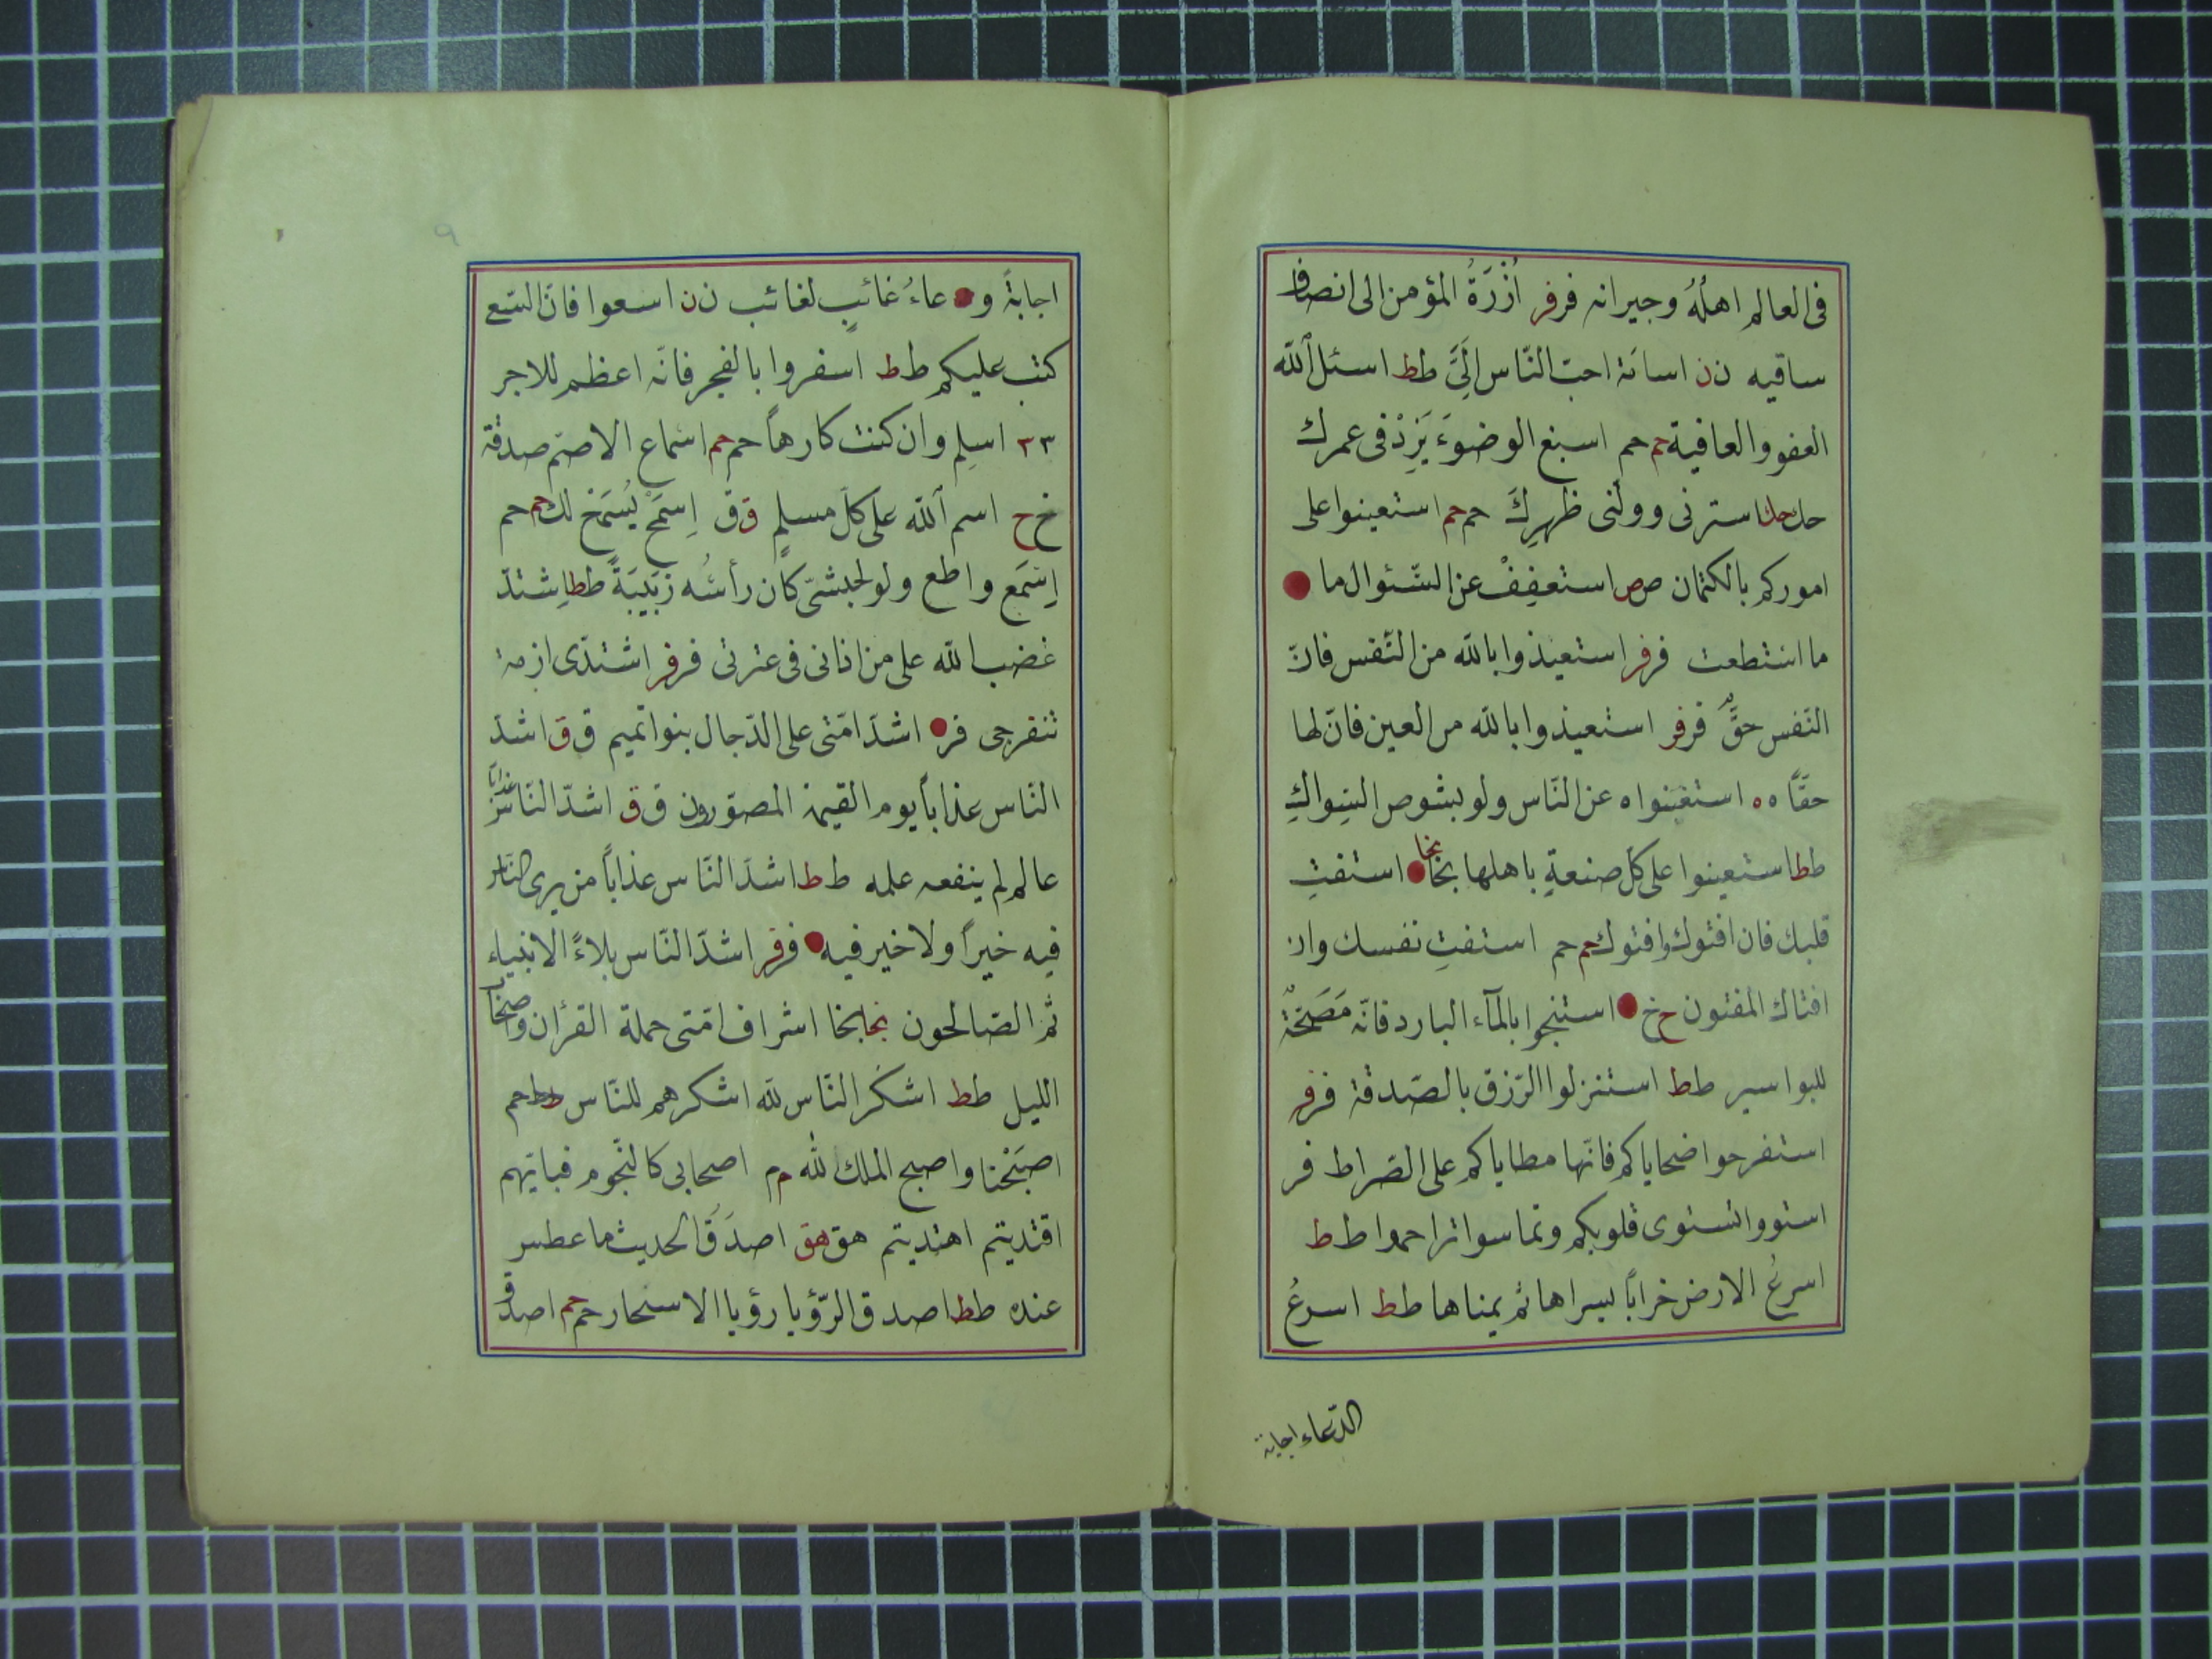 فى العالم اهلُهُ وجيرانه فر فر اُزْرَةُ المؤمن الى انصاف
ساقيه ن ن اسامة احبّ النّاس اِلَىَّ ط ط اسئل الله
العفو والعافية حم حم اسبغ الوضوءَ يَزِدْ فى عمرك
حل حل استرنى وولّنى ظهرِكَ حم حم استعينوا على
اموركم بالكتمان ص ص استعفِفْ عن السّئوال ما
ما استطعت فر فر استعيذوا بالله من النّفس فانّ
النّفس حقٌّ فر فر استعيذوا بالله من العين فانّ لها
حقّاً ه ه استغنوا ه عن النّاس ولو بشوص السِواكِ
ط ط استعينوا على كلّ صنعةٍ باهلها بخا بخا استفتِ
قلبك فان افتوك وافتوك حم حم استفتِ نفسك وان
افتاك المفتون خ خ استنجوا بالمآء البارد فانّه مَصَحّةٌ
للبواسير ط ط استنزلوا الرّزق بالصّدقة فر فر
استفرحوا ضحاياكم فانّها مطاياكم على الصّراط فر
استووا تستوى قلوبكم وتماسوا تراحموا ط ط
اسرعُ الارض خراباً يسراها ثم يمناها ط ط اسرعُ
الدّعاء اجابة
٩
اجابةً و دعاءُ غائبٍ لغائب ن ن اسعوا فانّ السّعى
كتب عليكم ط ط اسفروا بالفجر فانّه اعظم للاجر
٣٣ اسلِم وان كنت كارهاً حم حم اسماع الاصمّ صدقة
خ خ اسم الله على كلّ مسلمٍ ق ق اِسمَحْ يُسْمَحْ لك حم حم
اِسْمَع واطع ولو لحبشىّ كان رأسُه زَبيبَةً ط ط اِشتدّ
غضب الله على من اذانى فى عترتى فر فر اشتدّى ازمة
تنفرجى فر اشدّ امّتى على الدّجال بنوا تميم ق ق اشدّ
النّاس عذاباً يوم القيٰمة المصوّرون ق ق اشدّ النّاس عذاباً
عالم لم ينفعه علمه ط ط اشدّ النّاس عذاباً من يرى النّاس
فيه خيراً ولا خير فيه فر فر اشدّ النّاس بلاءً الانبياء
ثمّ الصّالحون بخا بخا اشراف امّتى حملة القرأن واصحاب
الليل ط ط اشكَر النّاس لله اشكرهم للنّاس ط ط حم
اصبَحْنا واصبح الملك لله م م اصحابى كالنّجوم فبايّهم
اقتديتم اهتديتم هق هق اصدَقُ الحديث ما عطس
عنده ط ط اصدق الرّؤيا رؤيا الاسحار حم حم اصدق